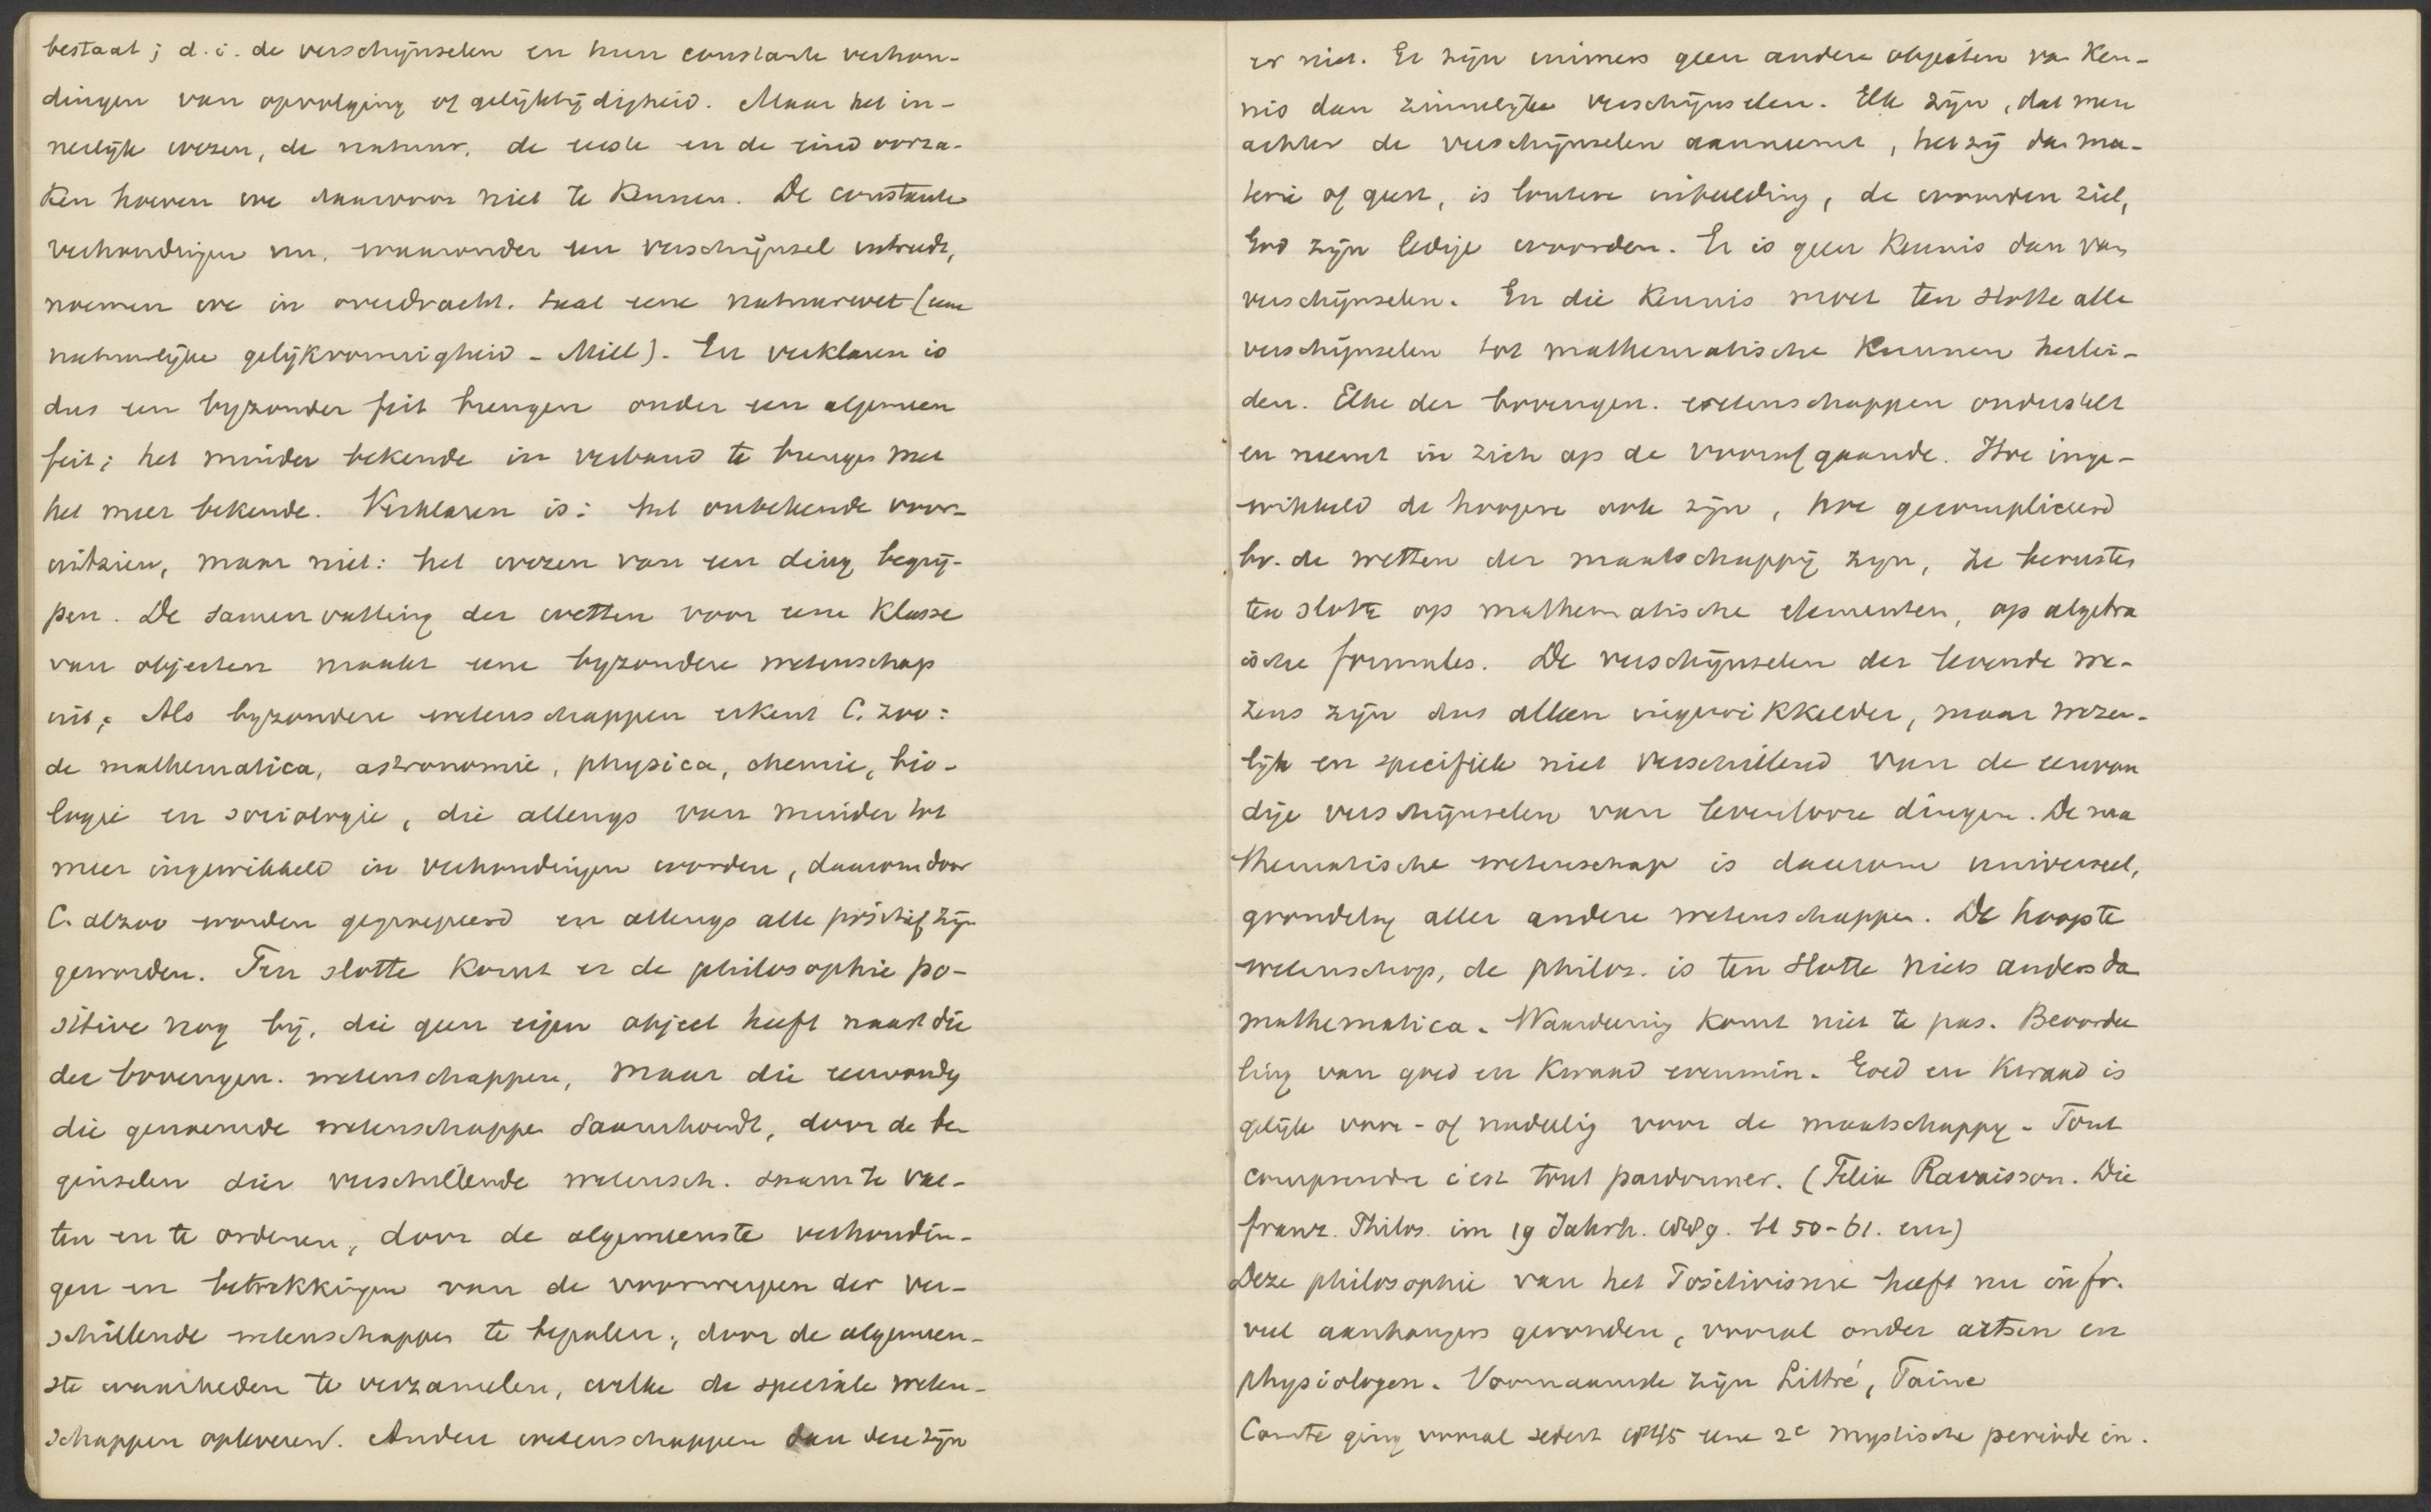 bestaat; d.i. de verschijnselen en hun constante verhou-
dingen van opvolging of gelijktijdigheid. Maar het in-
nerlijk wezen, de natuur, de eerste en de eind oorza-
ken hoeven we daarvoor niet te kennen. De constante
verhoudingen nu, waaronder een verschijnsel intreedt,
noemen we in overdracht. taal eene natuurwet (eene
natuurlijke gelijkvormigheid - Mill). En verklaren is
dus een byzonder feit brengen onder een algemeen
feit; het minder bekende in verband te brengen met
het meer bekende. Verklaren is: het onbekende voor-
uitzien, maar niet: het wezen van een ding begrij-
pen. De samenvatting der wetten voor eene klasse
van objecten maakt eene byzondere wetenschap
uit. Als byzondere wetenschappen erkent C. zoo:
de mathematica, astronomie, physica, chemie, bio-
logie en sociologie, die allengs van minder tot
meer ingewikkeld in verhoudingen worden, daarom door
C. alzoo worden gegroepeerd en allengs alle positief zijn
geworden. Ten slotte komt er de philosophie po-
sitive nog bij, die geen eigen object heeft naast die
der bovengen. wetenschappen, maar die eenvoudig
die genoemde wetenschappen saamhoudt, door de be-
ginselen dier verschillende wetensch. saam te vat-
ten en te ordenen, door de algemeenste verhoudin-
gen en betrekkingen van de voorwerpen der ver-
schillende wetenschappen te bepalen, door de algemeen-
ste waarheden te verzamelen, welke de speciale weten-
schappen opleveren. Andere wetenschappen dan deze zijn
er niet. Er zijn immers geen andere objecten van ken-
nis dan zinnelijke verschijnselen. Elk zijn, dat men
achter de verschijnselen aanneemt, hetzij dan ma-
terie of geest, is loutere inbeelding, de woorden ziel,
God zijn ledige woorden. Er is geen kennis dan van
verschijnselen. En die kennis moet ten slotte alle
verschijnselen tot mathematische kunnen herlei-
den. Elke der bovengen. wetenschappen onderstelt
en neemt in zich op de voorafgaande. Hoe inge-
wikkeld de hoogere ook zijn, hoe gecompliceerd
bv. de wetten der maatschappij zijn, ze berusten
ten slotte op mathematische elementen, op algebra
ische formules. De verschijnselen der levende we-
zens zijn dus alleen ingewikkelder, maar wezen-
lijk en specifiek niet verschillend van de eenvou
dige verschijnselen van levenlooze dingen. De ma
thematische wetenschap is daarom universeel,
grondslag aller andere wetenschappen. De hoogste
wetenschap, de philos. is ten slotte niets anders dan
mathematica. Waardeering komt niet te pas. Beoordee
ling van goed en kwaad evenmin. Goed en kwaad is
gelijk voor- of nadeelig voor de maatschappy. Tout
comprendre c'est tout pardonner. (Felix Ravaisson. Die
franz. Philos. im 19 Jahrh. bl 50-61. enz)
Deze philosophie van het Positivisme heeft nu in fr.
veel aanhangers gevonden, vooral onder artsen en
physiologen. Voornaamste zijn Littré, Taine
Comte ging vooral sedert 1845 eene 2e mystische periode in.